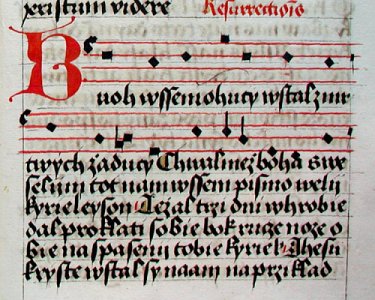 xpistum videre Resurrectiōis
Buoh wssemohucy wstal zmr
twych zaducy Chwalmez boha s we
selim tot nam wssem pismo welij
kyrieleyson Lezal trzi dni w hrobie
dal proklati sobie bok ruze noze o
bie na spasenij tobie kyriel Ghesu
kryste wstal sy naam na prziklad